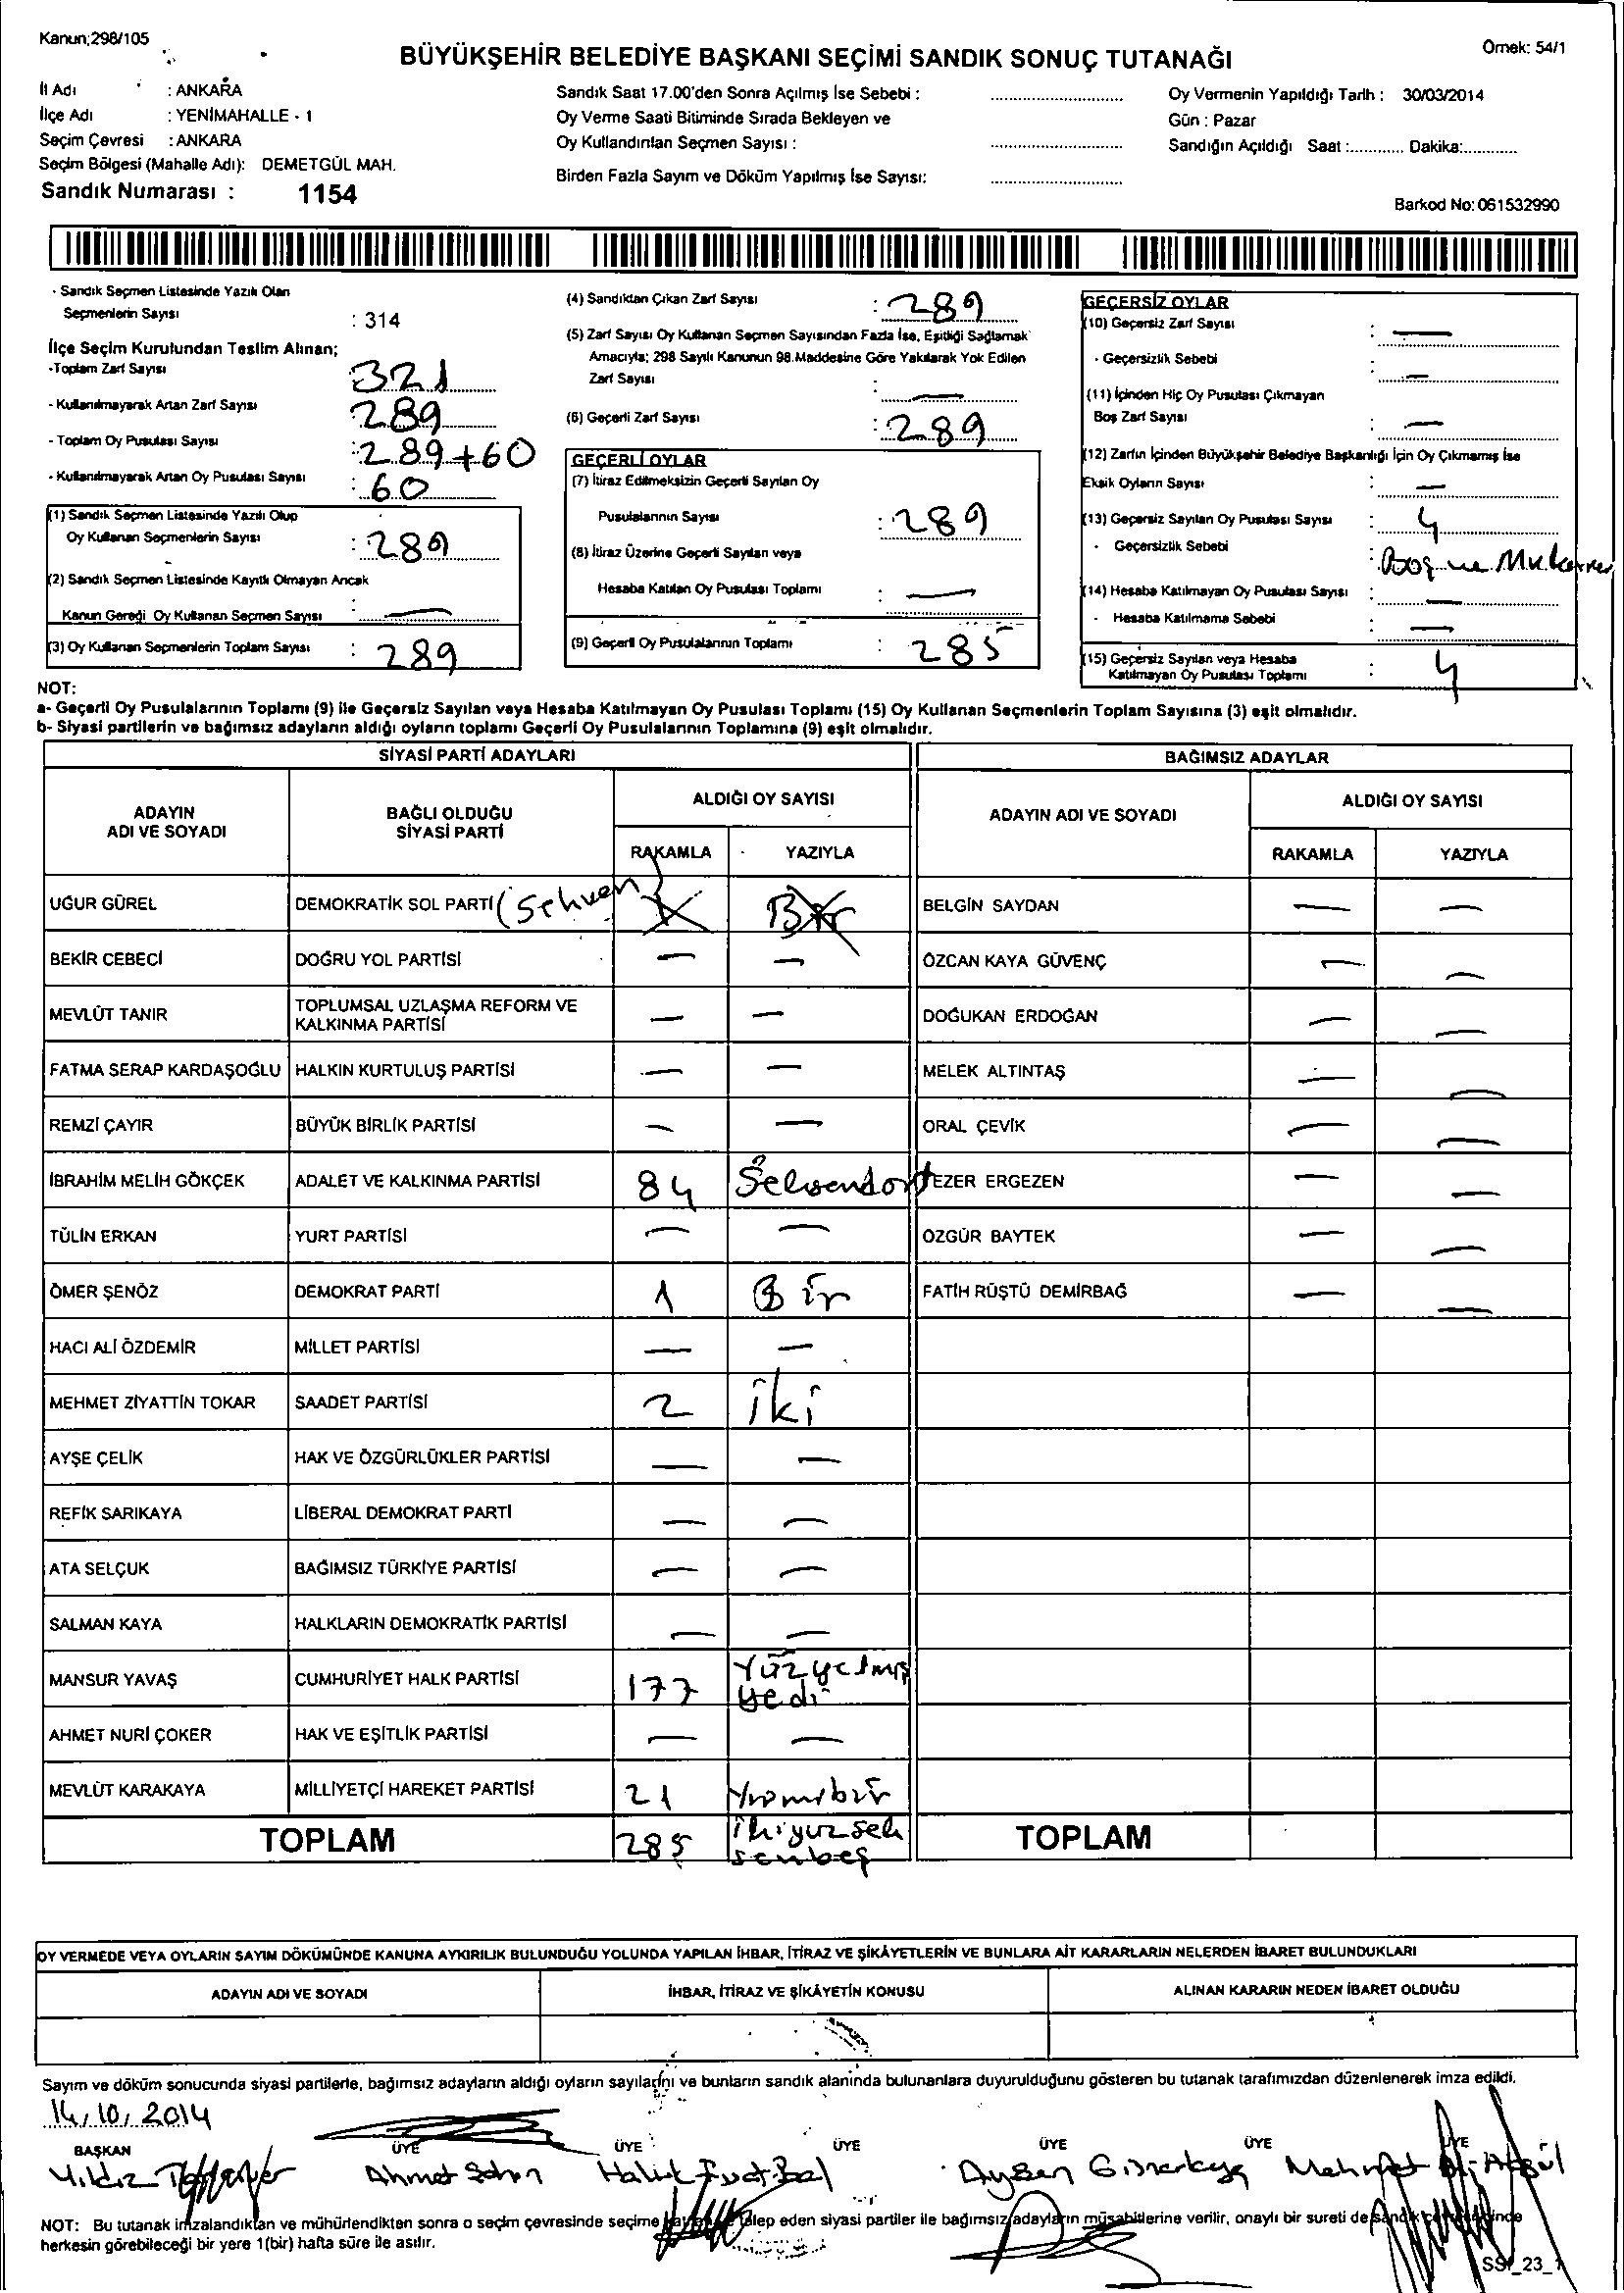 Kanun;298/105
Örnek: 54/1
BÜYÜKŞEHİR BELEDİYE BAŞKANI SEÇİMİ SANDIK SONUÇ TUTANAĞI
İl Adı : ANKARA
İlçe Adı : YENİMAHALLE - 1
Seçim Çevresi : ANKARA
Seçim Bölgesi (Mahalle Adı): DEMETGÜL MAH.
Sandık Numarası : 1154
Sandık Saat 17.00'den Sonra Açılmış İse Sebebi :
Oy Verme Saati Bitiminde Sırada Bekleyen ve
Oy Kullandırılan Seçmen Sayısı :
Birden Fazla Sayım ve Döküm Yapılmış İse Sayısı:
Oy Vermenin Yapıldığı Tarih : 30/03/2014
Gün : Pazar
Sandığın Açıldığı Saat :............ Dakika:............
Barkod No: 061532990
- Sandık Seçmen Listesinde Yazılı Olan
Seçmenlerin Sayısı : 314
İlçe Seçim Kurulundan Teslim Alınan;
-Toplam Zarf Sayısı 321
- Kullanılmayarak Artan Zarf Sayısı 289
- Toplam Oy Pusulası Sayısı : 289+60
- Kullanılmayarak Artan Oy Pusulası Sayısı : 60
(1) Sandık Seçmen Listesinde Yazılı Olup
Oy Kullanan Seçmenlerin Sayısı : 289
(2) Sandık Seçmen Listesinde Kayıtlı Olmayan Ancak
Kanun Gereği Oy Kullanan Seçmen Sayısı : —
(3) Oy Kullanan Seçmenlerin Toplam Sayısı : 289
(4) Sandıktan Çıkan Zarf Sayısı : 289
(5) Zarf Sayısı Oy Kullanan Seçmen Sayısından Fazla İse, Eşitliği Sağlamak
Amacıyla; 298 Sayılı Kanunun 98.Maddesine Göre Yakılarak Yok Edilen
Zarf Sayısı : —
(6) Geçerli Zarf Sayısı : 289
GEÇERLİ OYLAR
(7) İtiraz Edilmeksizin Geçerli Sayılan Oy
Pusulalarının Sayısı : 289
(8) İtiraz Üzerine Geçerli Sayılan veya
Hesaba Katılan Oy Pusulası Toplamı : —
(9) Geçerli Oy Pusulalarının Toplamı : 285
GEÇERSİZ OYLAR
(10) Geçersiz Zarf Sayısı : —
- Geçersizlik Sebebi : —
(11) İçinden Hiç Oy Pusulası Çıkmayan
Boş Zarf Sayısı : —
(12) Zarfın İçinden Büyükşehir Belediye Başkanlığı İçin Oy Çıkmamış İse
Eksik Oyların Sayısı : —
(13) Geçersiz Sayılan Oy Pusulası Sayısı : 4
- Geçersizlik Sebebi : Boş ve
(14) Hesaba Katılmayan Oy Pusulası Sayısı : —
- Hesaba Katılmama Sebebi : —
(15) Geçersiz Sayılan veya Hesaba
Katılmayan Oy Pusulası Toplamı : 4
NOT:
a- Geçerli Oy Pusulalarının Toplamı (9) ile Geçersiz Sayılan veya Hesaba Katılmayan Oy Pusulası Toplamı (15) Oy Kullanan Seçmenlerin Toplam Sayısına (3) eşit olmalıdır.
b- Siyasi partilerin ve bağımsız adayların aldığı oyların toplamı Geçerli Oy Pusulalarının Toplamına (9) eşit olmalıdır.
SİYASİ PARTİ ADAYLARI BAĞIMSIZ ADAYLAR
ADAYIN ADI VE SOYADI BAĞLI OLDUĞU SİYASİ PARTİ ALDIĞI OY SAYISI ADAYIN ADI VE SOYADI ALDIĞI OY SAYISI
RAKAMLA YAZIYLA RAKAMLA YAZIYLA
UĞUR GÜREL DEMOKRATİK SOL PARTİ (Sehven) Bir BELGİN SAYDAN — —
BEKİR CEBECİ DOĞRU YOL PARTİSİ — — ÖZCAN KAYA GÜVENÇ — —
MEVLÜT TANIR TOPLUMSAL UZLAŞMA REFORM VE KALKINMA PARTİSİ — — DOĞUKAN ERDOĞAN — —
FATMA SERAP KARDAŞOĞLU HALKIN KURTULUŞ PARTİSİ — — MELEK ALTINTAŞ — —
REMZİ ÇAYIR BÜYÜK BİRLİK PARTİSİ — — ORAL ÇEVİK — —
İBRAHİM MELİH GÖKÇEK ADALET VE KALKINMA PARTİSİ 84 Seksendört EZER ERGEZEN — —
TÜLİN ERKAN YURT PARTİSİ — — ÖZGÜR BAYTEK — —
ÖMER ŞENÖZ DEMOKRAT PARTİ 1 Bir FATİH RÜŞTÜ DEMİRBAĞ — —
HACI ALİ ÖZDEMİR MİLLET PARTİSİ — —
MEHMET ZİYATTİN TOKAR SAADET PARTİSİ 2 iki
AYŞE ÇELİK HAK VE ÖZGÜRLÜKLER PARTİSİ — —
REFİK SARIKAYA LİBERAL DEMOKRAT PARTİ — —
ATA SELÇUK BAĞIMSIZ TÜRKİYE PARTİSİ — —
SALMAN KAYA HALKLARIN DEMOKRATİK PARTİSİ — —
MANSUR YAVAŞ CUMHURİYET HALK PARTİSİ 177 Yüzyetmiş yedi
AHMET NURİ ÇOKER HAK VE EŞİTLİK PARTİSİ — —
MEVLÜT KARAKAYA MİLLİYETÇİ HAREKET PARTİSİ 21 Yirmibir
TOPLAM 285 ikiyüzsek senbeş TOPLAM
OY VERMEDE VEYA OYLARIN SAYIM DÖKÜMÜNDE KANUNA AYKIRILIK BULUNDUĞU YOLUNDA YAPILAN İHBAR, İTİRAZ VE ŞİKÂYETLERİN VE BUNLARA AİT KARARLARIN NELERDEN İBARET BULUNDUKLARI
ADAYIN ADI VE SOYADI İHBAR, İTİRAZ VE ŞİKÂYETİN KONUSU ALINAN KARARIN NEDEN İBARET OLDUĞU
Sayım ve döküm sonucunda siyasi partilerle, bağımsız adayların aldığı oyların sayılarını ve bunların sandık alanında bulunanlara duyurulduğunu gösteren bu tutanak tarafımızdan düzenlenerek imza edildi.
14/10/2014
BAŞKAN ÜYE ÜYE ÜYE ÜYE ÜYE ÜYE
Yıldız Ahmet Haluk Fuat Aysen Mehmet Ali
NOT: Bu tutanak imzalandıktan ve mühürlendikten sonra o seçim çevresinde seçime talep eden siyasi partiler ile bağımsız adayların müşahitlerine verilir, onaylı bir sureti de sandık
herkesin görebileceği bir yere 1(bir) hafta süre ile asılır.